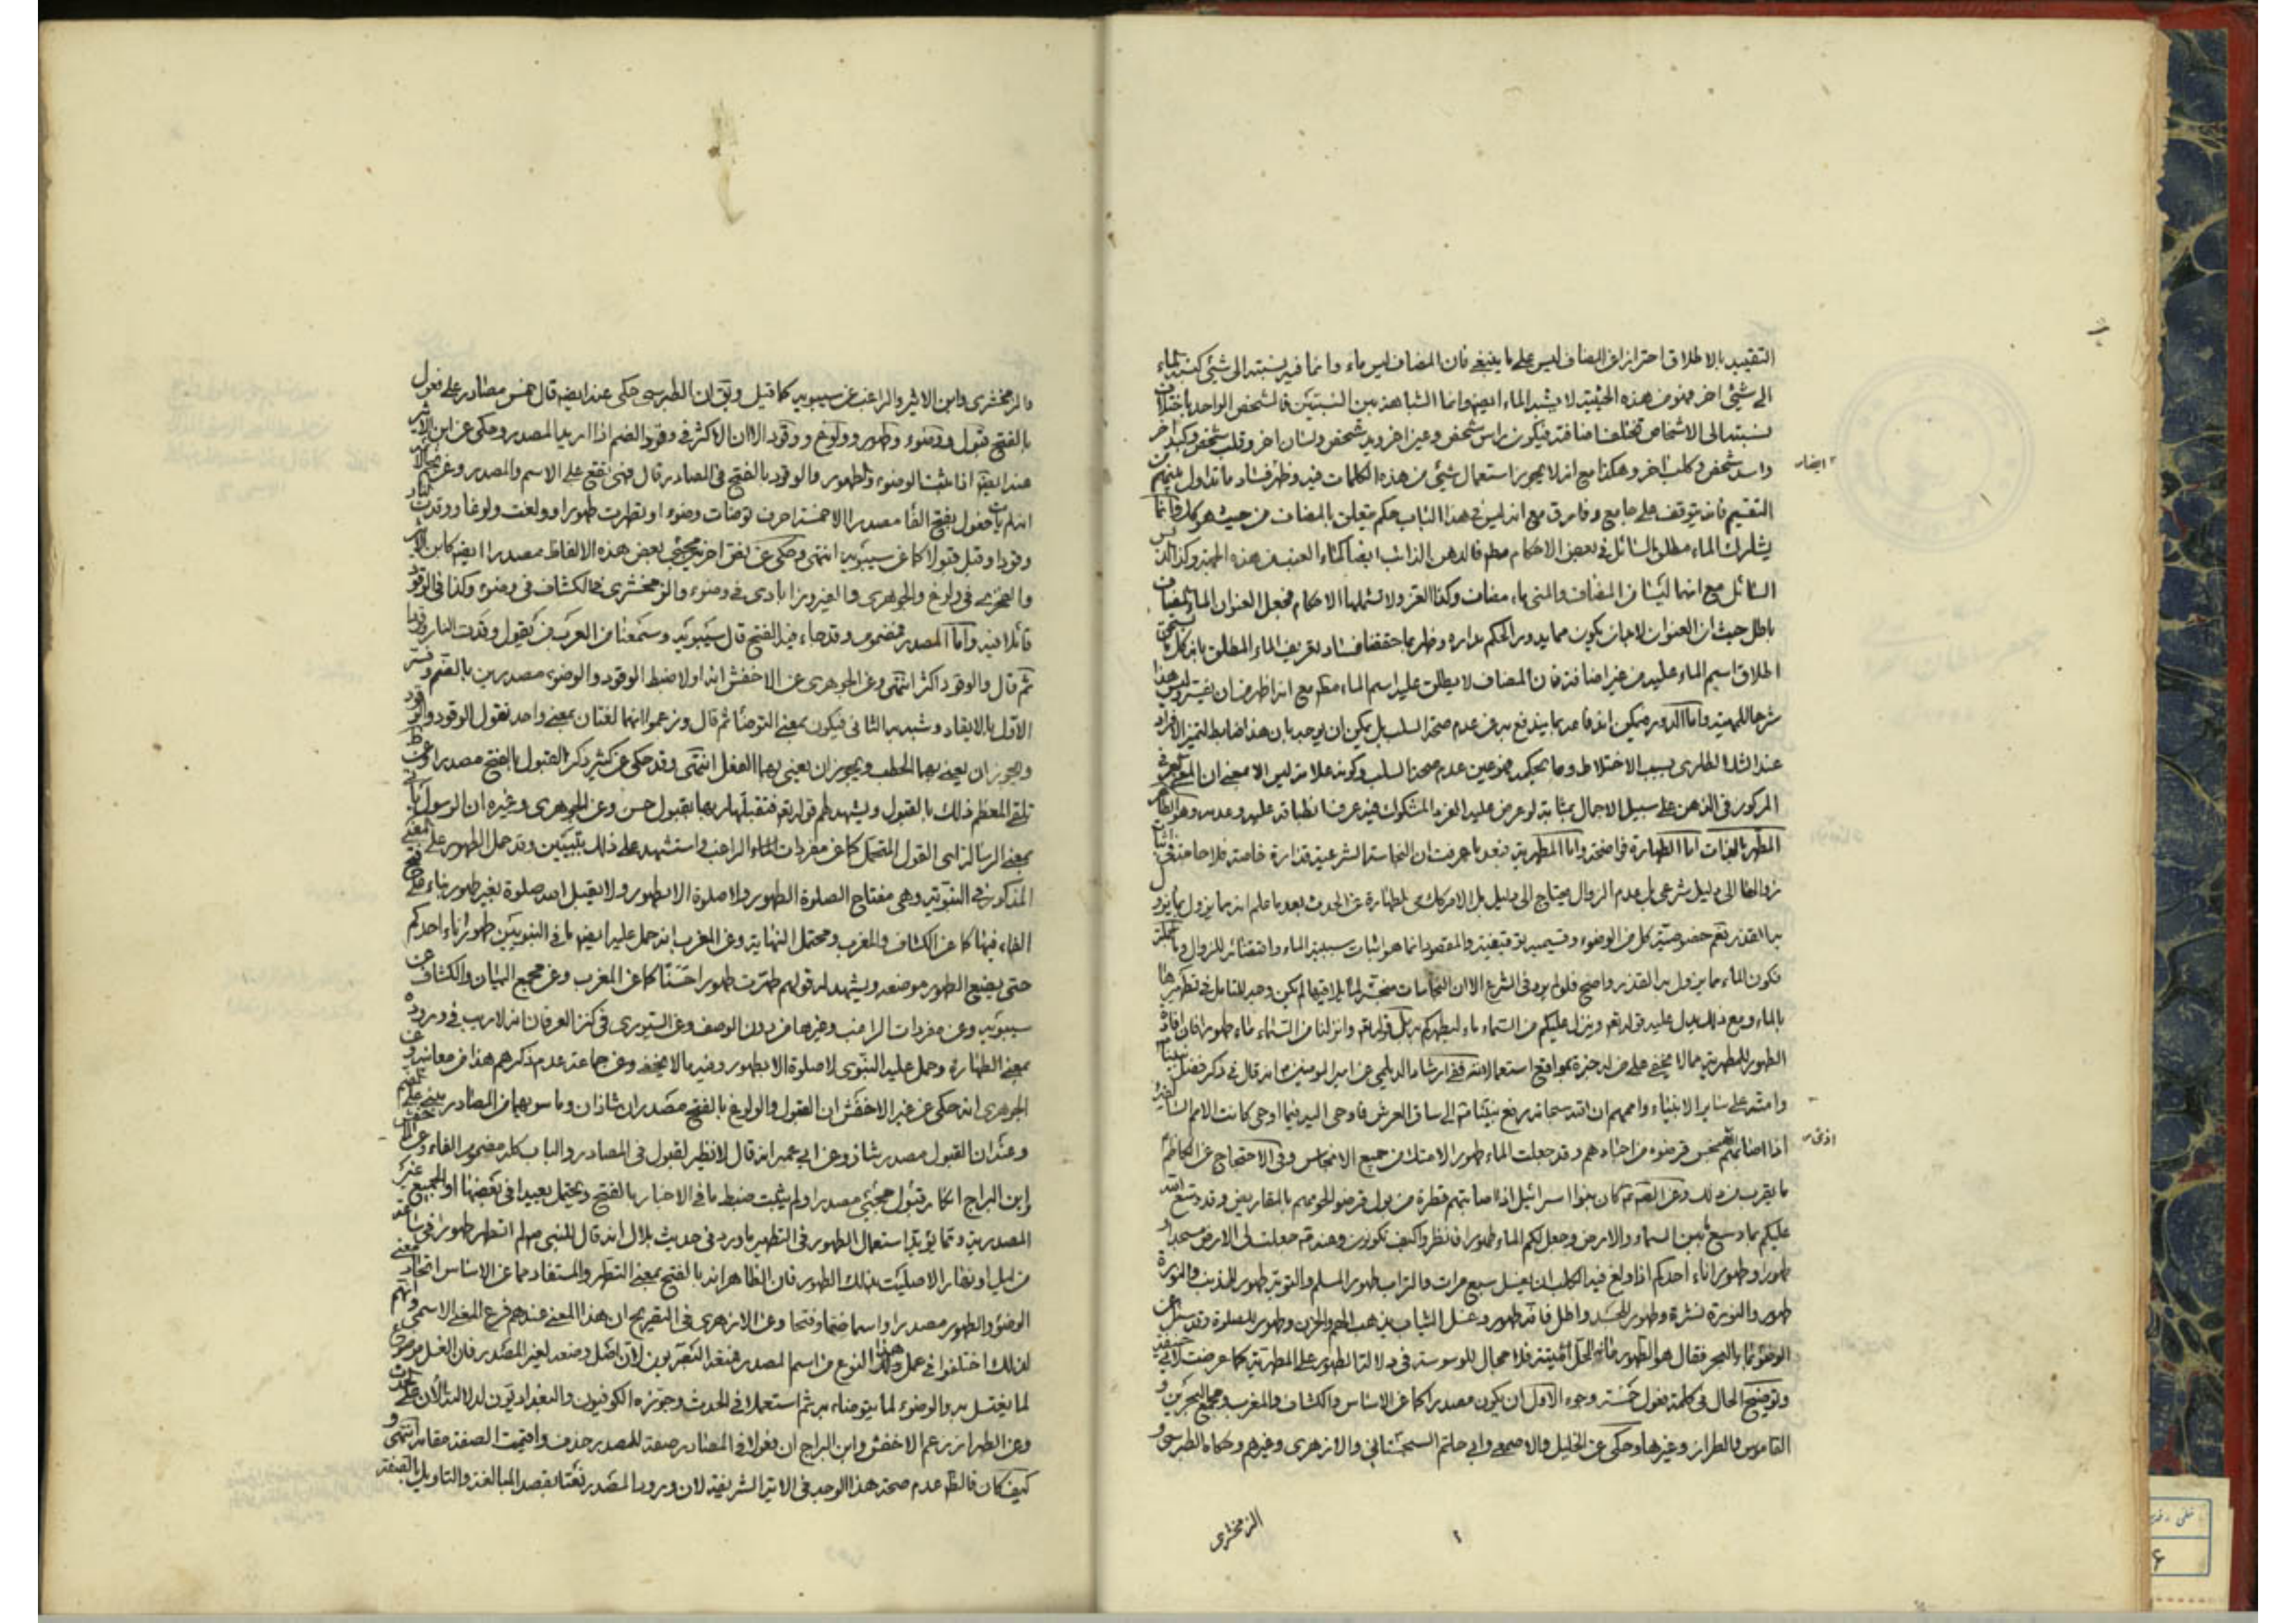 التقييد بالاطلاق احتراز عن المضاف ليس على ما ينبغى فان المضاف ليس ماء وانما فيه نسبته الى شئ كنسبة الماء
الى شئ اخر فهو من هذه الحيثية لا يشبه الماء ايضا وانما التشابه بين النسبتين فالشخص الواحد باختلاف
نسبته الى الاشخاص تختلف اضافته فيكون راس شخص وعين اخر ويد شخص ولسان اخر وقلب شخص وكبد اخر
واسد شخص وكلب اخر وهكذا مع انه لا يجوز استعمال شئ من هذه الكلمات فيه وظهر فساد ما تداول بينهم من
ايضا
التقسيم فانه يتوقف على جامع وفارق مع انه ليس فى هذا الباب حكم متعلق بالمضاف من حيث هو كك فانما
يشارك الماء مطلق السائل فى بعض الاحكام مطم فالدهن الذائب ايضا كماء العنب من هذه الجهة وكذا
السائل مع انها ليسا من المضاف والمنى ماء مضاف وكذا ولا تشملها الاحكام فجعل العنوان الماء المضاف
باطل حيث ان العنوان لابد ان يكون مما يدور الحكم مداره وظهر بما حققنا فساد تعريف الماء المطلق بانه كل ما يستحق
اطلاق اسم الماء عليه من غير اضافة فان المضاف لا يطلق عليه اسم الماء مطم مع انه اظهر من ان يفسر وليس هذا
شرحا للمهية واما الدور فيمكن دفعه بما يندفع به عن عدم صحة السلب بل يمكن ان يوجه بان هذا ضابط لتميز الافراد
عند الشك الطارى بسبب الاختلاط وما يحكيه من عدم صحة السلب وكونه علامة ليس الا بمعنى ان المعنى
المركوز فى الذهن على سبيل الاجمال بمثابة لو عرض عليه الفرد المشكوك فيه عرف انطباقه عليه وعدمه وهو الطاهر
المطهر بالذات اما الطهارة فواضحة واما المطهرية فبعد ما عرفت ان النجاسة الشرعية قذارة خاصة فلا حاجة فى اثبات
زوالها الى دليل شرعى بل عدم الزوال يحتاج الى دليل بل الامر كك فى الطهارة عن الحدث بعد ما علم انه مما يزول بما يزول
به القذر نعم خصوصية كل من الوضوء وقسيميه توقيفية والمقصود انما هو اثبات سببية الماء واقتضائه للزوال وبالجملة
فكون الماء مما يزول به القذر واضح فلو لم يرد فى الشرع الا ان النجاسات منجسة لما يلاقيها لم يكن وجه للتامل فى تطهيرها
بالماء ومع ذلك يدل عليه قوله تعم وينزل عليكم من السماء ماء ليطهركم به بل قوله تعم وانزلنا من السماء ماء طهورا فان افادة
الطهور للمطهرية مما لا يخفى على من له خبرة بمواقع استعمالاته ففى ارشاد الديلمى عن امير المومنين ع انه قال فى ذكر فضل نبينا
وامته على ساير الانبياء واممهم ان الله سبحانه رفع نبينا ص الى ساق العرش فاوحى اليه فيما اوحى كانت الامم السالفة
اذا اصابهم نجس قرضوه من اجسادهم وقد جعلت الماء طهورا لامتك من جميع الانجاس وفى الاحتجاج عن الكاظم
اذى
ما يقرب من ذلك وعن الصم كان بنوا اسرائيل اذا اصابتهم قطرة من بول قرضوا لحومهم بالمقاريض وقد وسع الله
عليكم ما وسع بين السماء والارض وجعل لكم الماء طهورا فانظروا كيف تكونون وعنه ص جعلت لى الارض مسجدا و
طهورا وطهور اناء احدكم اذا ولغ فيه الكلب ان يغسل سبع مرات والتراب طهور المسلم والتوبة طهور للمذنب والنورة
طهور والنورة نشرة وطهور للجسد وغسل الثياب يذهب الهم والحزن وطهور للصلوة وقد سئل عن
الوضوء بماء البحر فقال هو الطهور مائه الحل ميتته فلا مجال للوسوسة فى دلالة الطهور على المطهرية كما عرضت لابى حنيفة
ولتوضيح الحال فى كلمة فعول خمسة وجوه الاول ان يكون مصدرا كما عن الاساس والكشاف والمغرب ومجمع البحرين و
القاموس والطراز وغيرها وحكى عن الخليل والاصمعى وابى حاتم السجستانى والازهرى وغيرهم وحكاه الطبرسى و
الزمخشرى
٢
والزمخشرى وابن الاثير والراغب عن سيبويه كما قيل ويق ان الطبرسى حكى عنه ايضا قال خمس مصادر على فعول
بالفتح قبول ووضوء وطهور وولوغ ووقود الا ان الاكثر فى وقود الضم اذا اريد المصدر وحكى عن ابن الاثير
عنه ايضا اثبت الوضوء والطهور والوقود بالفتح فى المصادر قال فهى تقع على الاسم والمصدر وعن نجم الائمة
انه لم يات فعول بفتح الفاء مصدرا الا خمسة احرف توضات وضوء او تطهرت طهورا وولعت ولوغا ووقدت النار
وقودا وقبل قبولا كما عن سيبويه انتهى وحكى عن بعض اخر مجئ بعض هذه الالفاظ مصدرا ايضا كابن الاثير
والجزرى فى ولوغ والجوهرى والفيروزابادى فى وضوء والزمخشرى فى الكشاف فى وضوء وكذا فى الوقود
قائلا فيه واما المصدر فمضموم وقد جاء فيه الفتح قال سيبويه وسمعنا من العرب من يقول وقدت النار وقودا
ثم قال والوقود اكثر انتهى وعن الجوهرى عن الاخفش انه اولا ضبط الوقود والوضوء مصدرين بالضم وفسر
الاول بالايقاد وشبه به الثانى فيكون بمعنى التوضأ ثم قال وزعموا انهما لغتان بمعنى واحد تقول الوقود والوقود
ويجوز ان يعنى بهما الحطب ويجوز ان يعنى بهما الفعل انتهى وقد حكى عن كثير ذكر القبول بالفتح مصدرا وعن
تلقى المعظم ذلك بالقبول ويشهد لهم قوله تعم فتقبلها ربها بقبول حسن وعن الجوهرى وغيره ان الرسول ياتى
بمعنى الرسالة اى القول المتحمل كما عن مفردات الراغب واستشهد على ذلك ببيتين وقد حمل الطهور على المعنى
المذكور فى النبوية وهى مفتاح الصلوة الطهور ولا صلوة الا بطهور ولا يقبل الله صلوة بغير طهور بناء على فتح
الفاء فيها كما عن الكشاف والمغرب ومحتمل النهاية وعن المغرب انه حمل عليه ايضا ما فى النبويين طهور اناء احدكم
حتى يضع الطهور موضعه ويشهد له قولهم طهرت طهورا حسنا كما عن المغرب وعن مجمع البيان والكشاف عن
سيبويه وعن مفردات الراغب وغيرها من دون الوصف وعن السيورى فى كنز العرفان انه لا ريب فى وروده
بمعنى الطهارة وحمل عليه النبوى لا صلوة الا بطهور وفيه ما لا يخفى وعن جماعة عدم ذكرهم هذا من معانيه وعن
الجوهرى انه حكى عن غير الاخفش ان القبول والولوغ بالفتح مصدران شاذان وما سويهما من المصادر مبنى على الضم
وعنه ان القبول مصدر شاذ وعن ابى عمرو انه قال لا نظير لقبول فى المصادر والباب كله مضموم الفاء وعن
وابن البراج انكار فعول مجئ مصدرا ولم يثبت ضبط ما فى الاخبار بالفتح ويحتمل بعيدا فى بعضها او الجميع غير
المصدرية ومما يؤيد استعمال الطهور فى التطهير ما ورد فى حديث بلال انه قال للنبى ص لم اتطهر طهورا فى ساعة
من ليل او نهار الا صليت بذلك الطهور فان الظاهر انه بالفتح بمعنى التطهر والمستفاد مما عن الاساس اتحاد معنى
الوضوء والطهور مصدرا واسما ضما وفتحا وعن الازهرى فى التصريح ان هذا المعنى عندهم فرع المعنى الاسمى وانهم
لذلك اختلفوا فى عمل هذا النوع من اسم المصدر فمنعه البصريون لان اصل وضعه لغير المصدر فان الغسل موضوع
لما يغتسل به والوضوء لما يتوضاء به ثم استعملا فى الحدث وجوزه الكوفيون والبغداديون لدلالته الان على الحدث
وعن الطراز زعم الاخفش وابن البراج ان فعولا فى المصادر صفة للمصدر حذف واقيمت الصفة مقامه انتهى و
كيف كان فالظ عدم صحة هذا الوجه فى الاية الشريفة لان ورود المصدر نعتا بقصد المبالغة والتاويل بالصفة